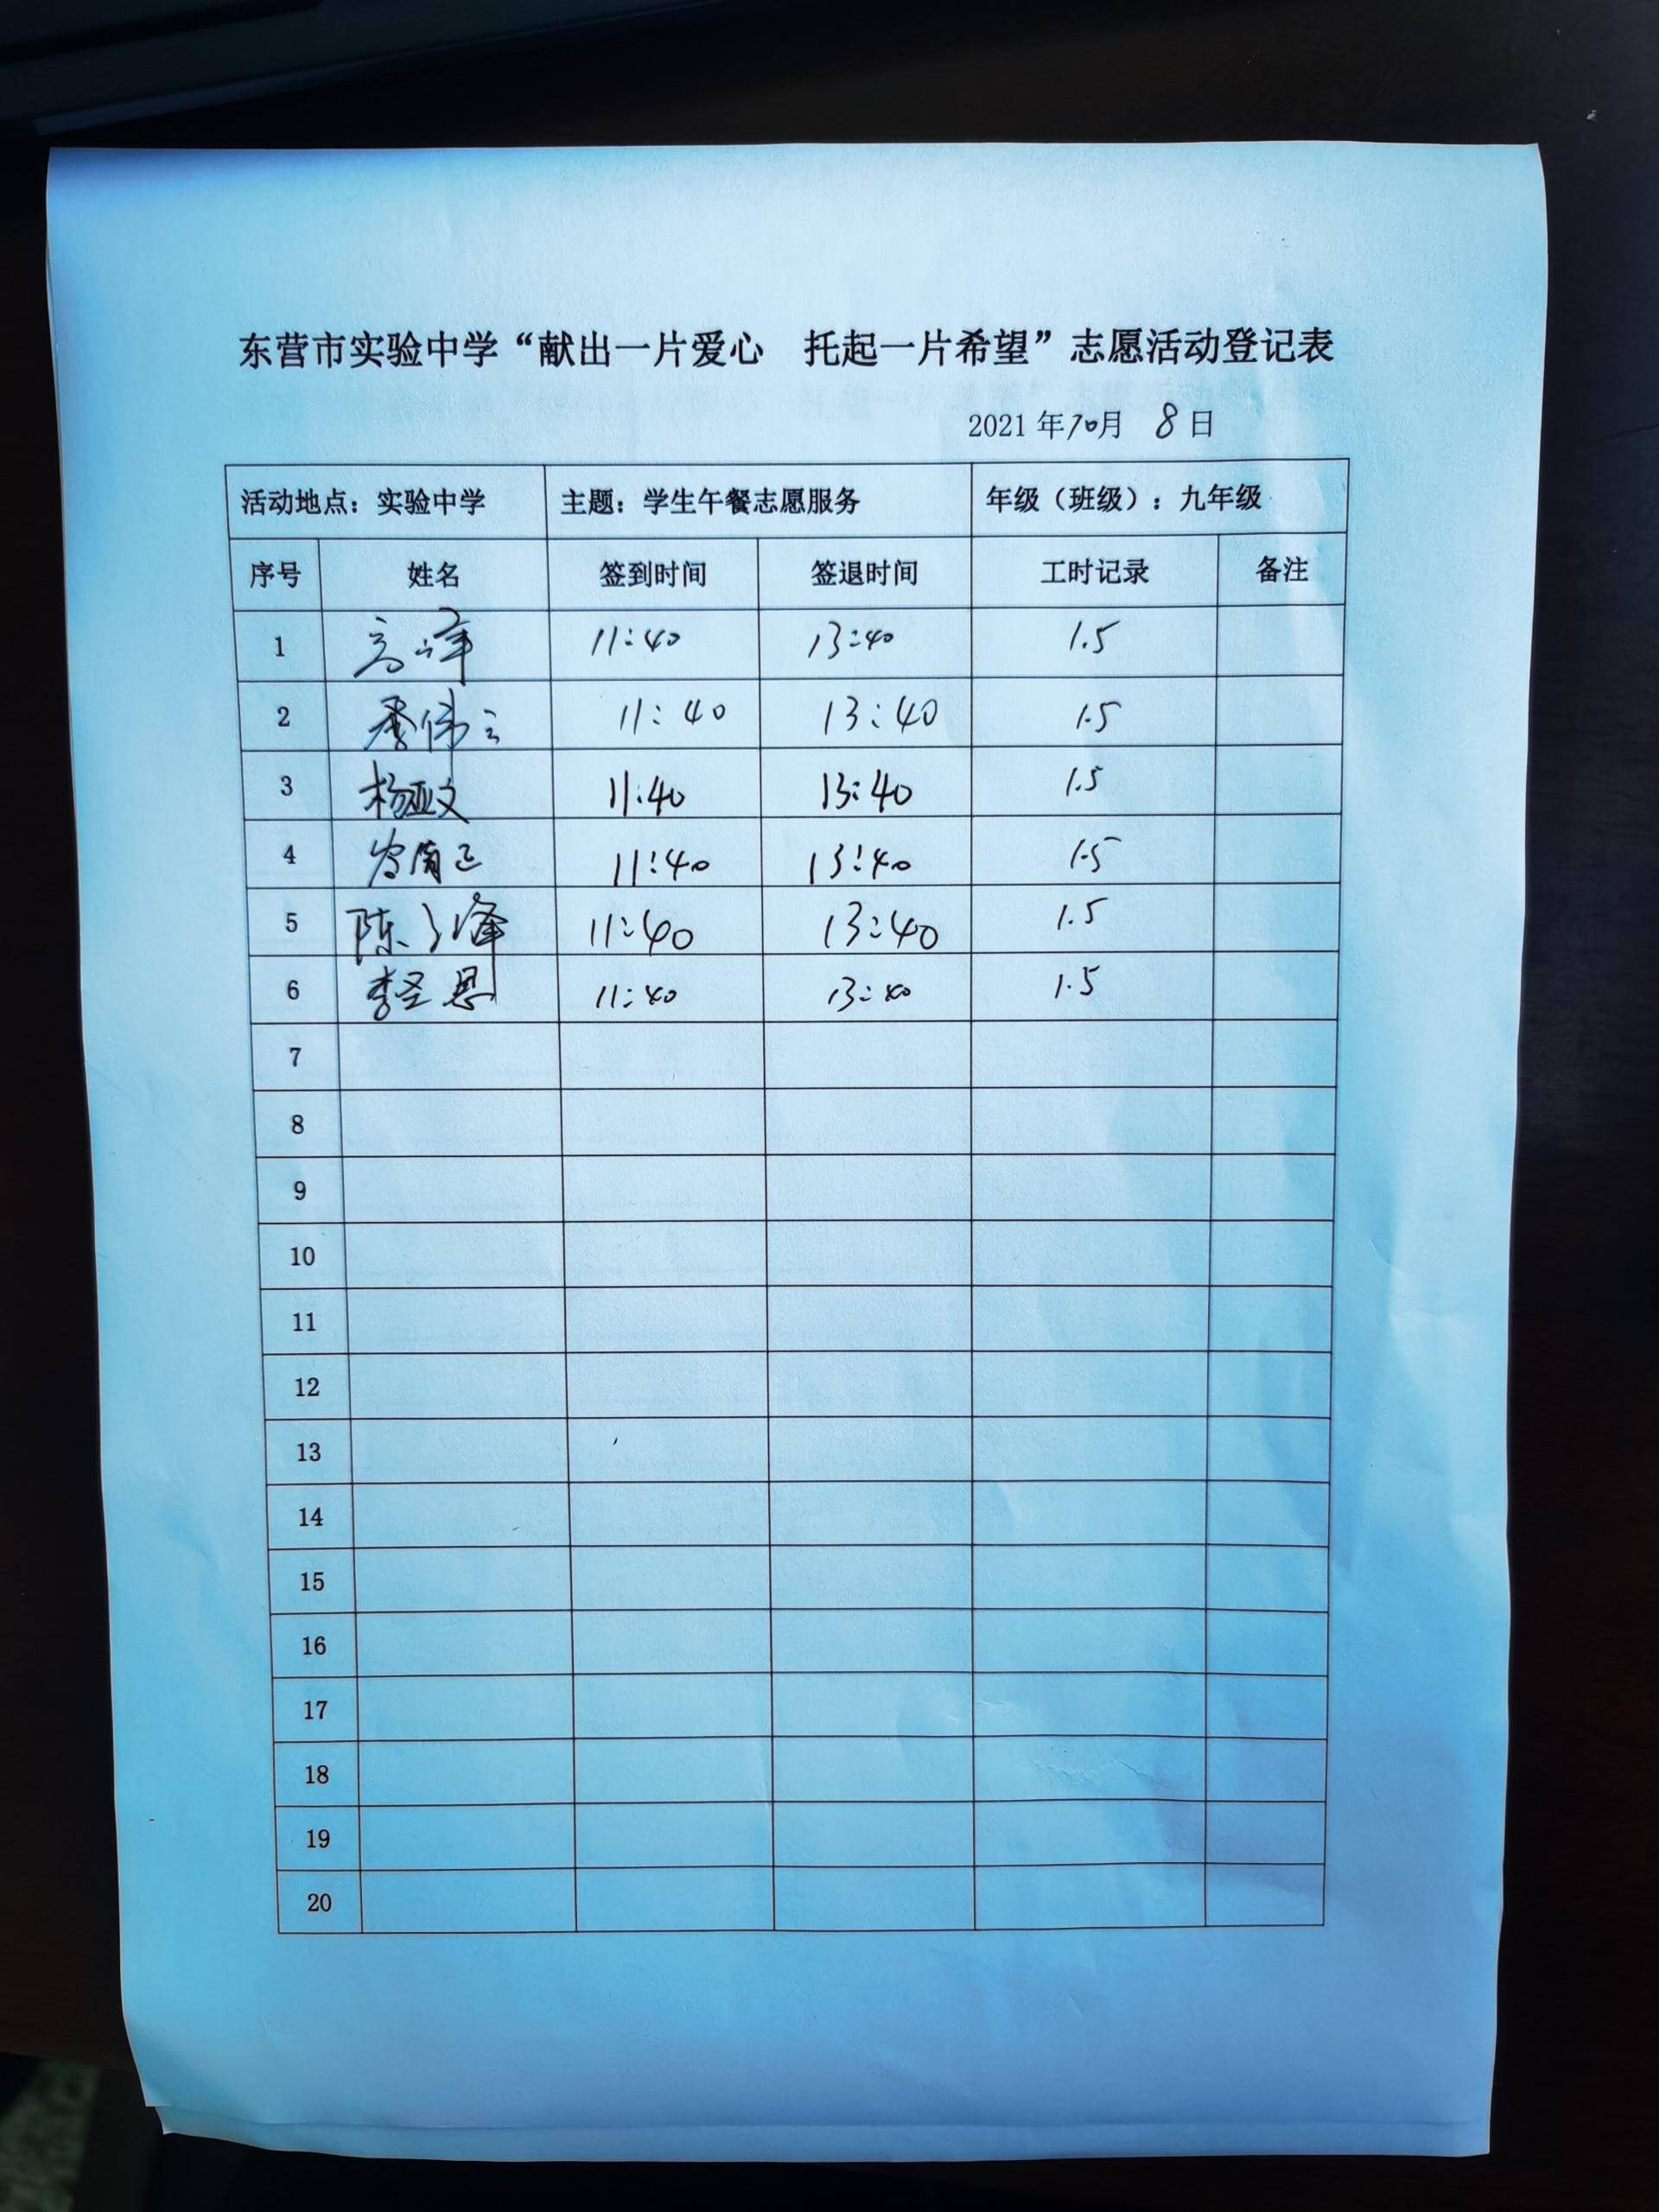 东营市实验中学“献出一片爱心 托起一片希望”志愿活动登记表
2021年10月 8日
活动地点：实验中学 主题：学生午餐志愿服务 年级（班级）：九年级
序号 姓名 签到时间 签退时间 工时记录 备注
1 高峰 11:40 13:40 1.5
2 季伟 11:40 13:40 1.5
3 杨亚文 11:40 13:40 1.5
4 11:40 13:40 1.5
5 陈 峰 11:40 13:40 1.5
6 李圣恩 11:40 13:40 1.5
7
8
9
10
11
12
13
14
15
16
17
18
19
20